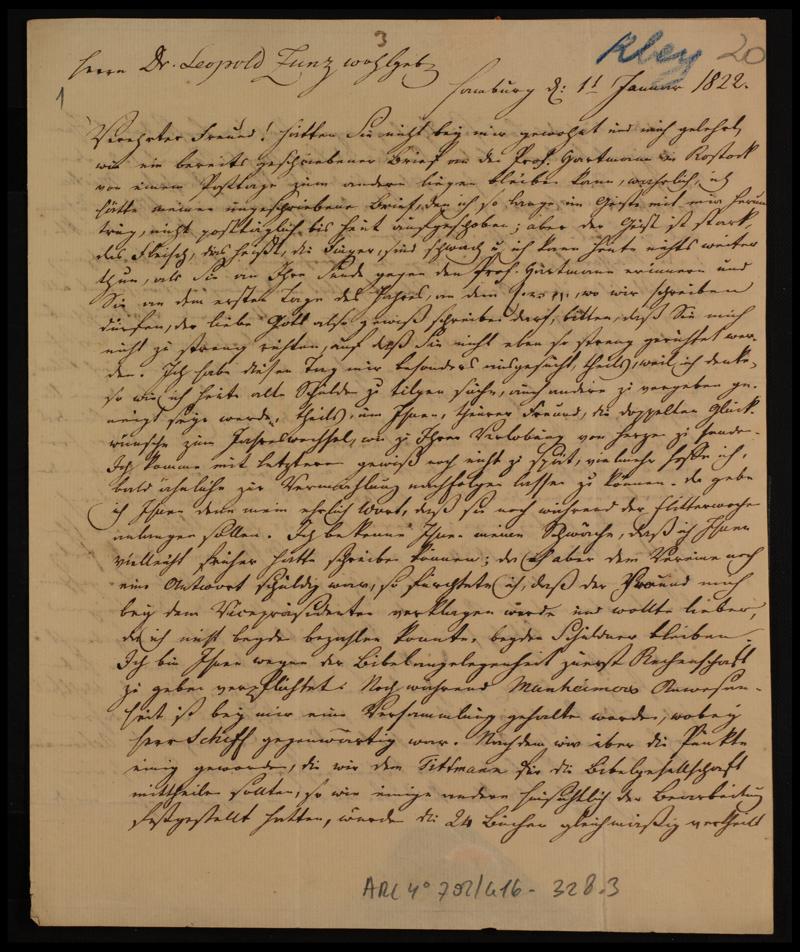 3
Kley 20
Herrn Dr. Leopold Zunz wohlgeb
1
Hamburg d: 1t Januar 1822.
Verehrter Freund! Hätten Sie nicht bey mir gewohnt und mich gelehrt,
wie ein bereits geschriebener Brief an den Prof. Hartmann in Rostock
von einem Posttage zum andern liegen bleiben kann, wahrlich, ich
hätte meinen ungeschriebenen Brief, den ich so lange im Geiste mit mir herum
trug, nicht posttäglich bis heut aufgeschoben; aber der Geist ist stark,
das Fleisch, das heißt, die Finger, sind schwach u. ich kann heute nichts weiter
thun, als Sie an Ihre Sünde gegen den Prof. Hartmann erinnern und
Sie an dem ersten Tage des Jahres, an dem wo wir schreiben
dürfen, der liebe Gott also gewiß schreiben darf, bitten, daß Sie mich
nicht zu streng richten, auf daß Sie nicht eben so streng gerichtet wer-
den. Ich habe diesen Tag mir besonders ausgesucht, theils, weil ich denke,
so wie ich heute alte Schulden zu tilgen suche, auch andere zu vergeben ge-
neigt seyn werden, theils, um Ihnen, theurer Freund, die doppelten Glück-
wünsche zum Jahreswechsel, wie zu Ihrer Verlobung von Herzen zu senden.
Ich komme mit letzterem gewiß noch nicht zu spät, vielmehr hoffe ich,
bald ähnliche zur Vermählung nachfolgen lassen zu können. Da gebe
ich Ihnen denn mein ehrlich Wort, daß sie noch während der Flitterwochen
anlangen sollen. Ich bekenne Ihnen meine Schwäche, daß ich Ihnen
vielleicht früher hätte schreiben können; da ich aber dem Vereine noch
eine Antwort schuldig war, so fürchtete ich, daß der Freund mich
bey dem Vicepräsidenten verklagen würde und wollte lieber,
da ich nicht beyde bezahlen konnte, beyden Schuldner bleiben.
Ich bin Ihnen wegen der Bibelangelegenheit zuerst Rechenschaft
zu geben verpflichtet: Noch während Manheimers Anwesen-
heit ist bey mir eine Versammlung gehalten worden, wobey
Herr Schiff gegenwärtig war. Nachdem wir über die Punkte
einig geworden, die wir dem Tittmann für die Bibelgesellschaft
mittheilen sollten, so wie einige andere hinsichtlich der Bearbeitung
festgestellt hatten, wurden die 24 Bücher gleichmäßig vertheilt
ARC 4° 792/G16-328.3